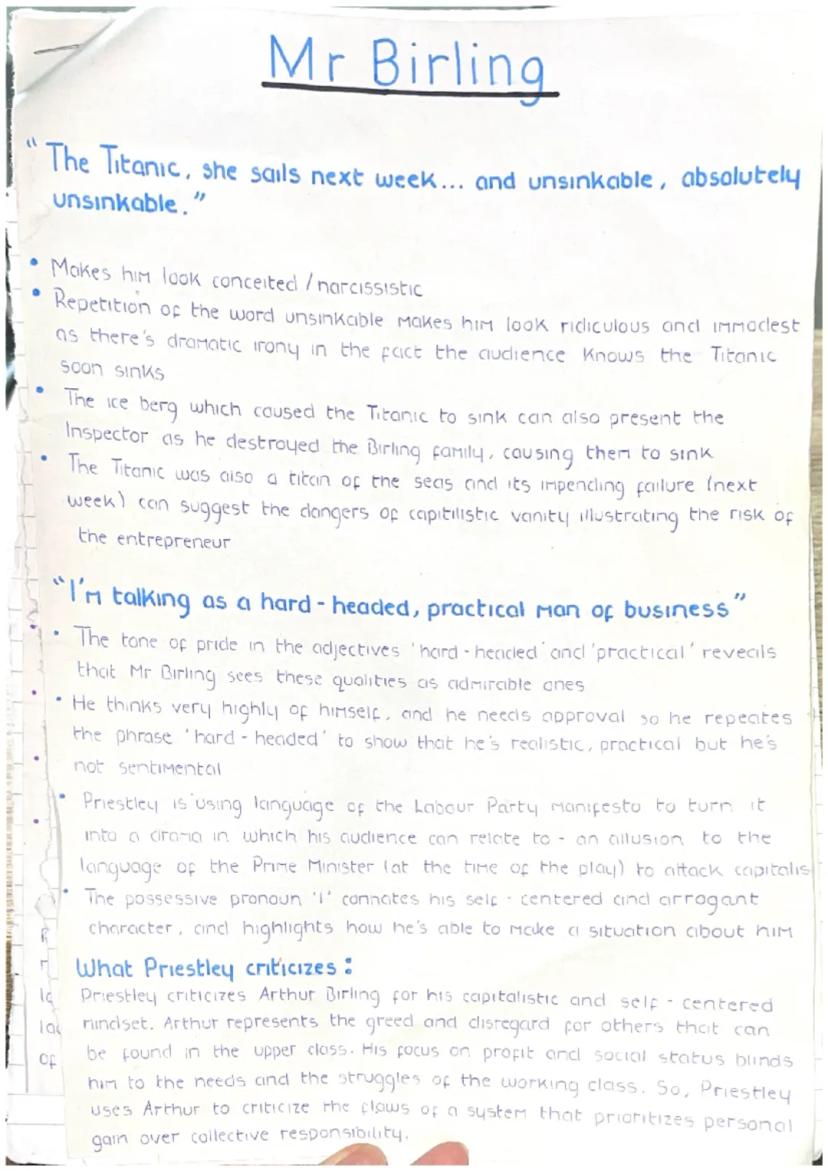 Mr Birling
"The Titanic, she sails next week... and unsinkable, absolutely
unsinkable."
• Makes him look conceited / narcissistic
• Repetition of the word unsinkable makes him look ridiculous and immodest
as there's dramatic irony in the fact the audience knows the Titanic
soon sinks
• The ice berg which caused the Titanic to sink can also present the
Inspector as he destroyed the Birling family, causing them to sink
• The Titanic was also a titan of the seas and its impending failure (next
week) can suggest the dangers of capitilistic vanity illustrating the risk of
the entrepreneur
"I'm talking as a hard-headed, practical man of business"
• The tone of pride in the adjectives 'hard-headed' and 'practical' reveals
that Mr Birling sees these qualities as admirable ones
• He thinks very highly of himself, and he needs approval so he repeates
the phrase 'hard-headed' to show that he's realistic, practical but he's
not sentimental
• Priestley is using language of the Labour Party manifesto to turn it
into a drama in which his audience can relate to - an allusion to the
language of the Prime Minister (at the time of the play) to attack capitalis
• The possessive pronoun 'I' connates his self-centered and arrogant
character, and highlights how he's able to make a situation about him
What Priestley criticizes:
Priestley criticizes Arthur Birling for his capitalistic and self-centered
mindset. Arthur represents the greed and disregard for others that can
be found in the upper class. His focus on profit and social status blinds
him to the needs and the struggles of the working class. So, Priestley
uses Arthur to criticize the flaws of a system that prioritizes personal
gain over collective responsibility.